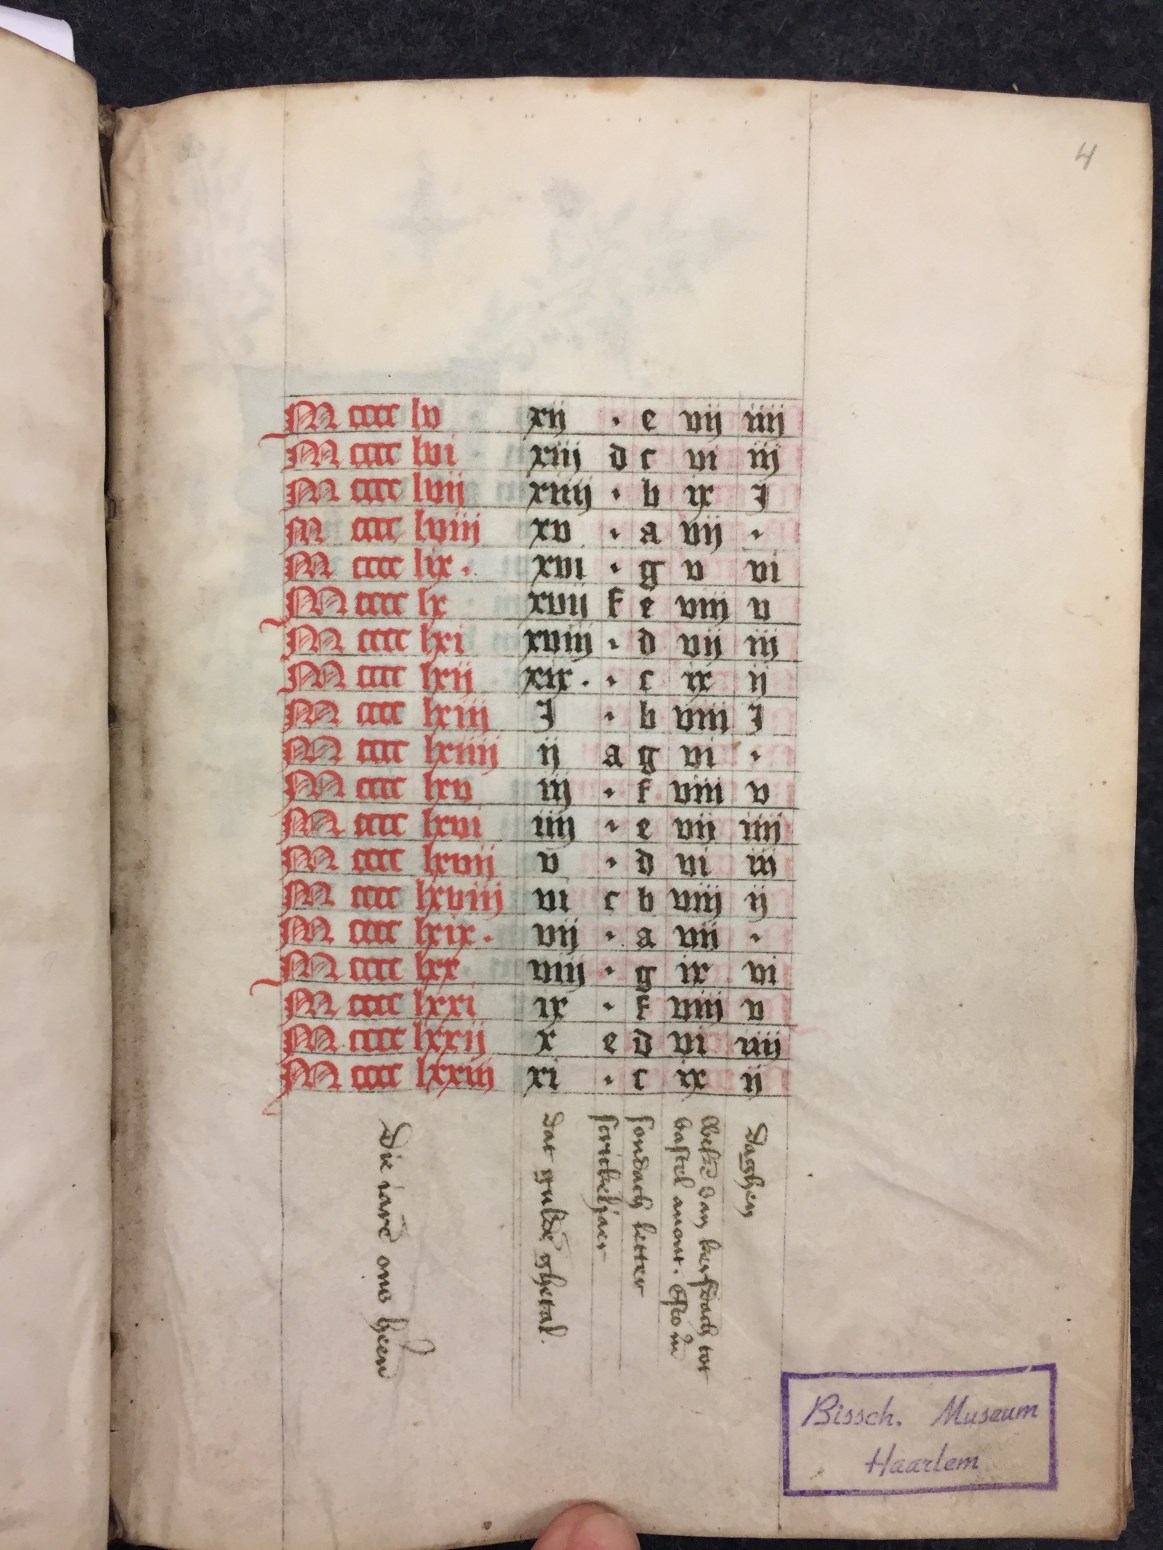 4
M cccc lv xij · e vij iiij
M cccc lvi xiij d c vi iij
M cccc lvij xiiij · b ix J
M cccc lviij xv · a vij ·
M cccc lix · xvi · g v vi
M cccc lx xvij f e viij v
M cccc lxi xviij · d vij iij
M cccc lxij xix · · c ix ij
M cccc lxiij J · b viij J
M cccc lxiiij ij a g vi ·
M cccc lxv iij · f viij v
M cccc lxvi iiij · e vij iiij
M cccc lxvij v · d vi iij
M cccc lxviij vi c b viij ij
M cccc lxix · vij · a vij ·
M cccc lxx viij · g ix vi
M cccc lxxi ix · f viij v
M cccc lxxij x e d vi iiij
M cccc lxxiij xi · c ix ij
Die iare ons heren
Dat gulde ghetal.
scrickeljaer
sondach letter
weke van kersdach tot
vastel auont. Esto m
Daghen
Bissch. Museum
Haarlem